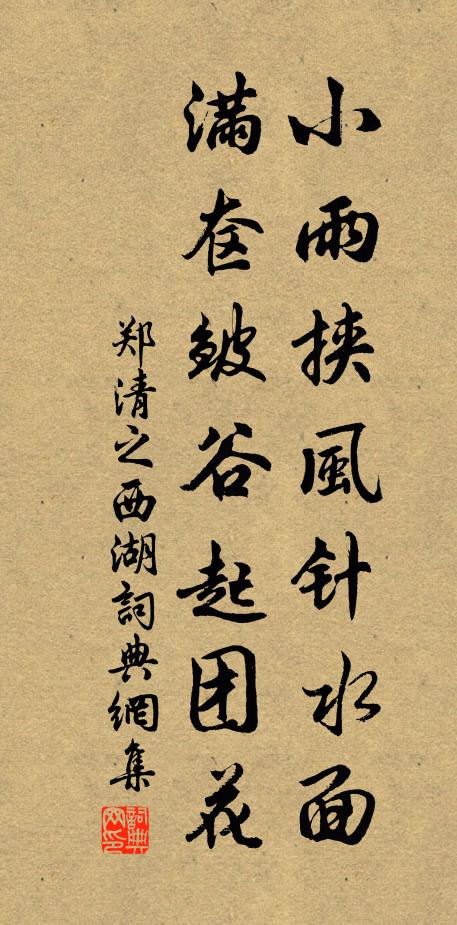 小雨挟風针水面
满奁皱谷起团花
郑清之西湖詞典網集
詞典网印